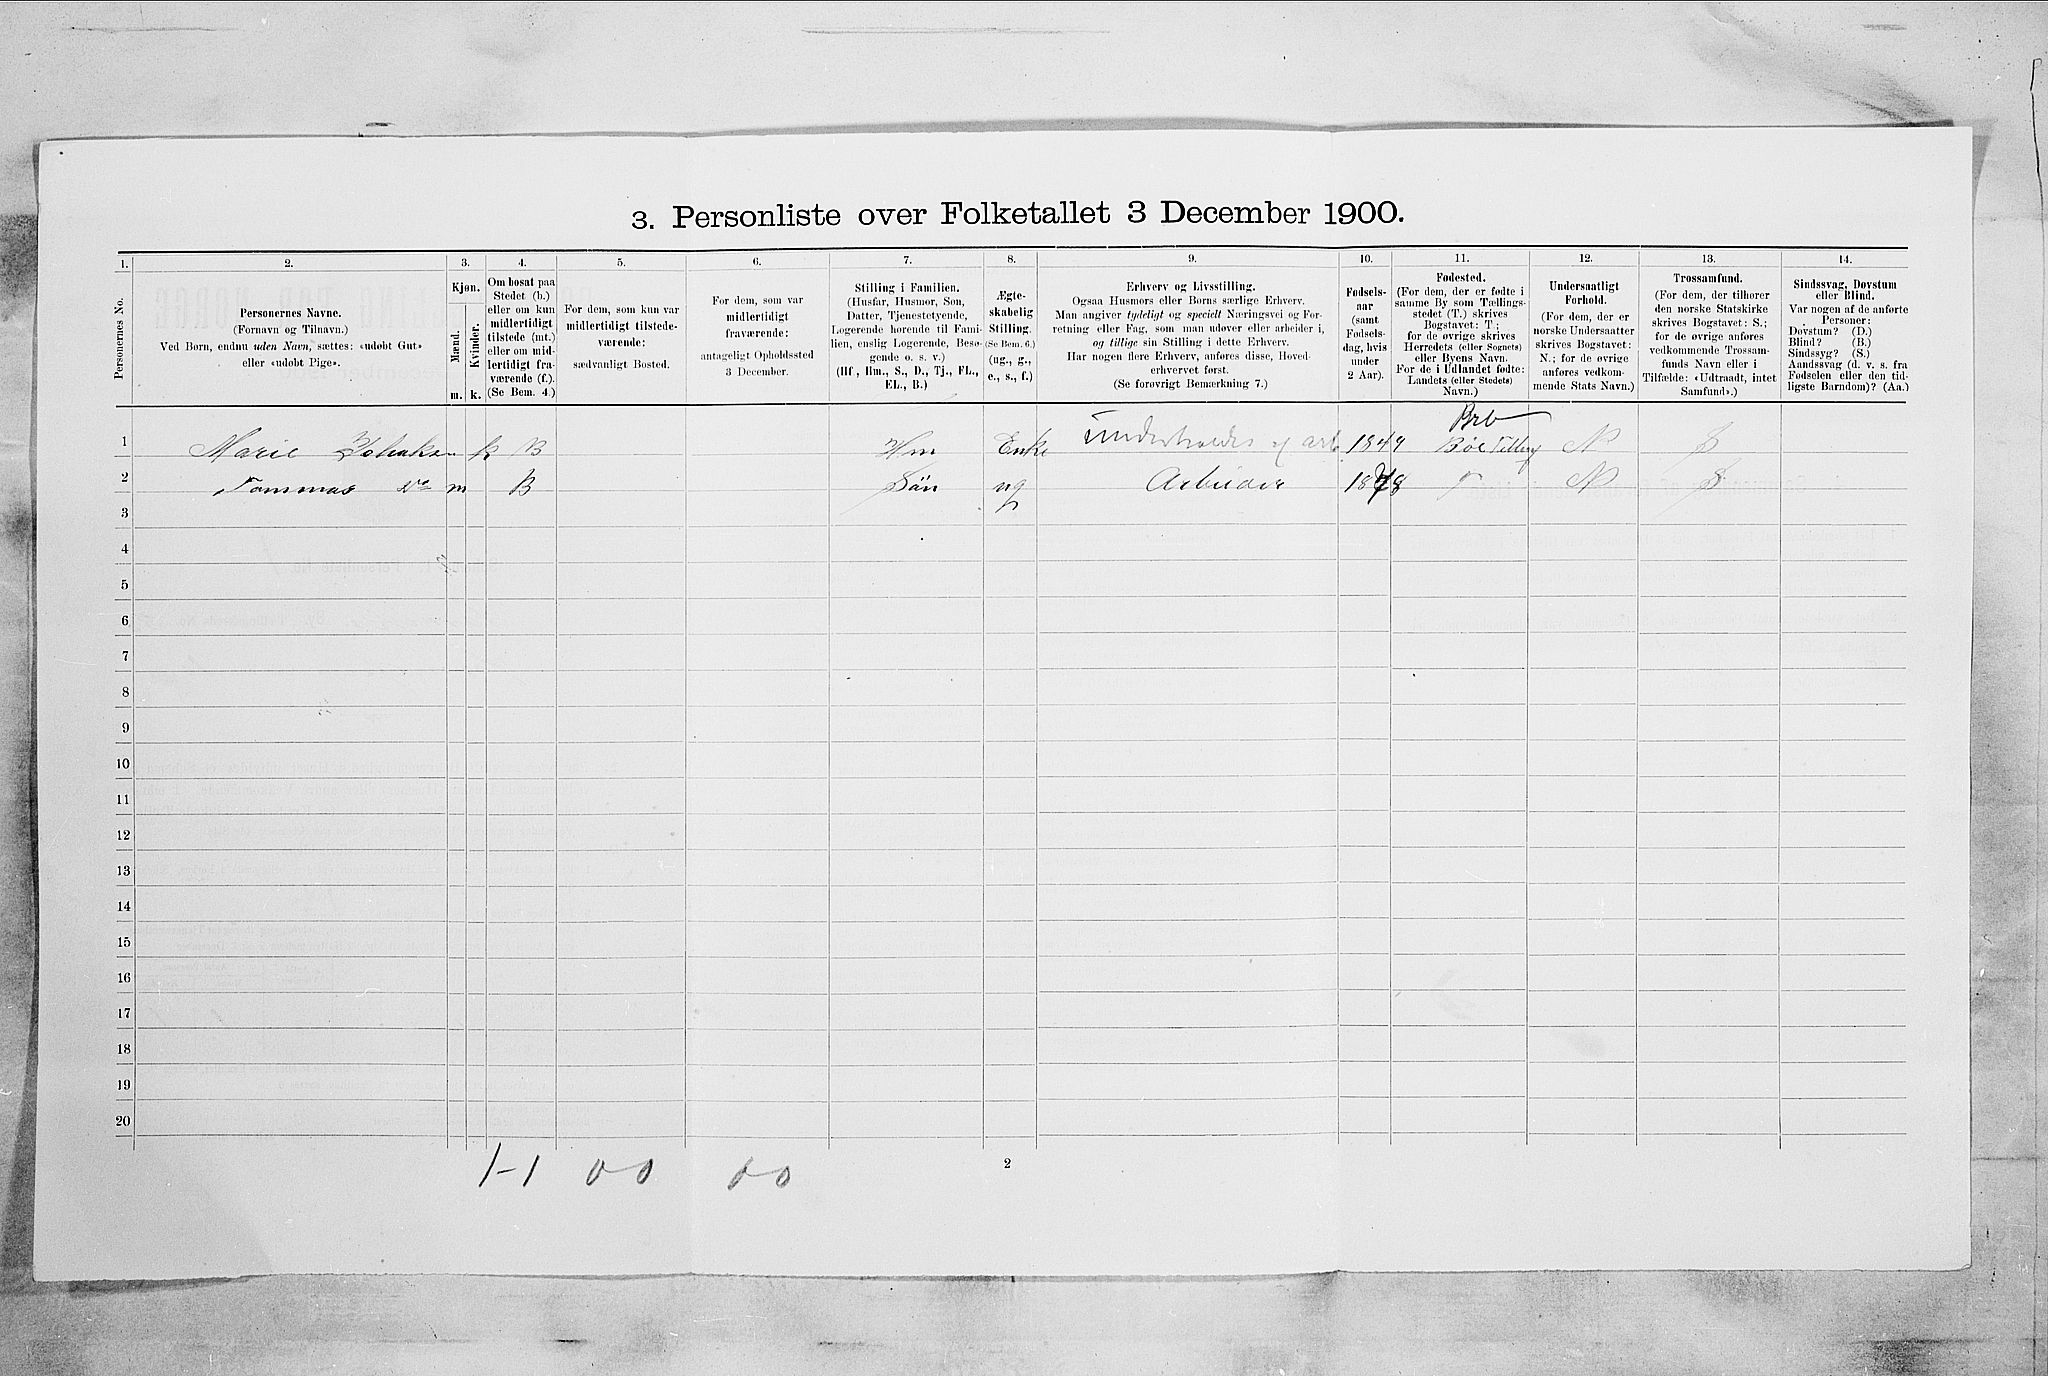 3. Personliste over Folketallet 3 December 1900.
1. 2. 3. 4. 5. 6. 7. 8. 9. 10. 11. 12. 13. 14.
Personernes No.
Personernes Navne.
(Fornavn og Tilnavn.)
Ved Børn, endnu uden Navn, sættes: «udøbt Gut»
eller «udøbt Pige».
Kjøn.
Mænd. Kvinder.
m. k.
Om bosat paa
Stedet (b.)
eller om kun
midlertidigt
tilstede (mt.)
eller om mid-
lertidigt fra-
værende (f.).
(Se Bem. 4.)
For dem, som kun var
midlertidigt tilstede-
værende:
sædvanligt Bosted.
For dem, som var
midlertidigt
fraværende:
antageligt Opholdssted
3 December.
Stilling i Familien.
(Husfar, Husmor, Søn,
Datter, Tjenestetyende,
Logerende hørende til Fami-
lien, enslig Logerende, Besø-
gende o. s. v.)
(Hf., Hm., S., D., Tj., FL.,
EL., B.)
Ægte-
skabelig
Stilling.
(Se Bem. 6.)
(ug., g.,
e., s., f.)
Erhverv og Livsstilling.
Ogsaa Husmors eller Børns særlige Erhverv.
Man angiver tydeligt og specielt Næringsvei og For-
retning eller Fag, som man udøver eller arbeider i,
og tillige sin Stilling i dette Erhverv.
Har nogen flere Erhverv, anføres disse, Hoved-
erhvervet først.
(Se forøvrigt Bemærkning 7.)
Fødsels-
aar
(samt
Fødsels-
dag, hvis
under
2 Aar).
Fødested.
(For dem, der er fødte i
samme By som Tællings-
stedet (T.) skrives
Bogstavet: T;
for de øvrige skrives
Herredets (eller Sognets)
eller Byens Navn.
For de i Udlandet fødte:
Landets (eller Stedets)
Navn.)
Undersaatligt
Forhold.
(For dem, der er
norske Undersaatter
skrives Bogstavet:
N.; for de øvrige
anføres vedkom-
mende Stats Navn.)
Trossamfund.
(For dem, der tilhører
den norske Statskirke
skrives Bogstavet: S.;
for de øvrige anføres
vedkommende Trossam-
funds Navn eller i
Tilfælde: «Udtraadt, intet
Samfund».)
Sindssvag, Døvstum
eller Blind.
Var nogen af de anførte
Personer:
Døvstum? (D.)
Blind? (B.)
Sindssyg? (S.)
Aandssvag (d. v. s. fra
Fødselen eller den tid-
ligste Barndom)? (Aa.)
Brb
1 Marie k B Hm Enke Underholdes af arb 1849 Bøe N S
2 Tommas Do m B Søn ug Arbeider 1878 T N S
3
4
5
6
7
8
9
10
11
12
13
14
15
16
17
18
19
20
1-1 00 00
2